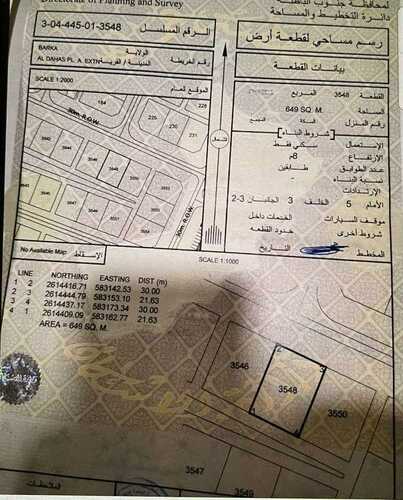 Directorate of Planning and Survey
لمحافظة جنوب الباطنة
دائرة التخطيط والمساحة
3-04-445-01-3548
الرقم المسلسل
رسم مساحي لقطعة أرض
BARKA
الولاية
AL DAHAS PL. A. EXTN
المدينة / القرية
رقم الخريطة
بيانات القطعة
SCALE 1:2000
الموقع العام
القطعة 3548 المربع
المساحة 649 SQ. M.
رقم المنزل السكة المجمع
شروط البناء
الإستعمال سكني فقط
الإرتفاع 8م
عدد الطوابق طابقين
نسبة البناء
الإرتدادات
الأمام 5 الخلف 3 الجانبان 3-2
موقف السيارات الخدمات داخل
شروط أخرى حدود القطعه
المخطط التاريخ
184
228
30m. R.O.W.
225
230
231
3543
3544
3545
3546
3548
3550
3551
30m. R.O.W.
شمال
No Available Map
الإسقاط
SCALE 1:1000
LINE NORTHING EASTING DIST (m)
1 2 2614416.71 583142.53 30.00
2 3 2614444.79 583153.10 21.63
3 4 2614437.17 583173.34 30.00
4 1 2614409.09 583162.77 21.63
AREA = 649 SQ. M.
3546
2
3
3548
1
4
3550
3547
3549
الملاحظات